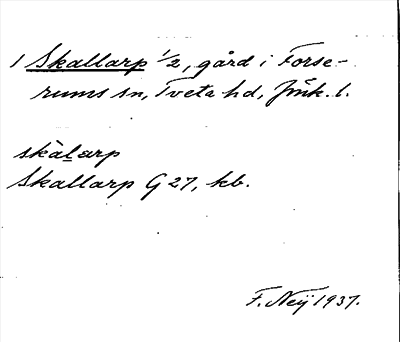 1 Skallarp 1/2, gård i Forse-
rums sn, Tveta hd, Jönk. l.
skàlarp
Skallarp G 27, kb.
F. Neij 1937.